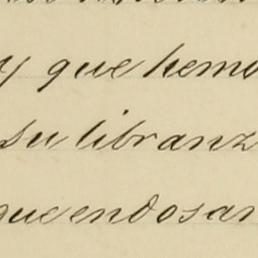 y que hemo
su libranz
que endosar